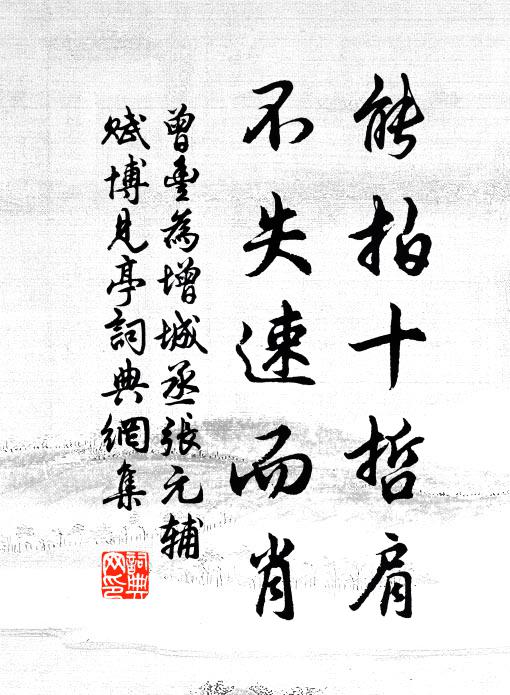 能拍十哲肩
不失速而肖
曾豐為增城丞張元輔
賦博見亭詞典網集
詞典
網印